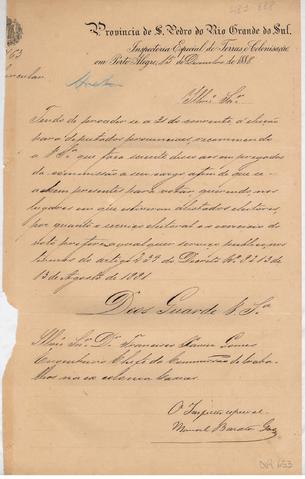 Provincia de S. Pedro do Rio Grande do Sul.
Inspectoria Especial de Terras e Colonisação
em Porto Alegre, de Dezembro de 1888.
Circular.
Illmo Snr.
Tendo de proceder-se a 31 do corrente á eleição
para deputados provinciaes, recommendo
a V. Sa. que faça sciente disso aos empregados
da commissão a seu cargo afim de que se
achem presentes para votar querendo, nos
lugares em que estiverem alistados eleitores,
por quanto o serviço eleitoral e o exercicio do
voto prefere a qualquer serviço publico, nos
termos do artigo 239 do Decreto No. 8213 de
13 de Agosto de 1881.
Deos Guarde V. Sa
Illmo Snr. Dr. Francisco Gomes
Engenheiro Chefe da Commissão de traba-
lhos na ex colonia Caxias.
O Inspector especial
Manoel Barata Góes